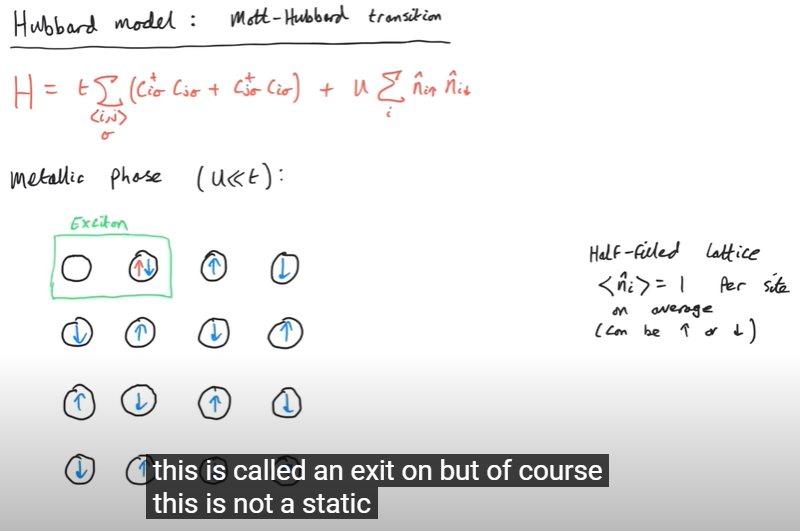 Hubbard model : Mott-Hubbard transition
H = t Σ (c†iσ cjσ + c†jσ ciσ) + u Σ n̂i↑ n̂i↓
<i,j> i
σ
Metallic phase (u≪t):
Exciton
↑↓ ↑ ↓
Half-filled lattice
<n̂i> = 1 per site
on average
(can be ↑ or ↓)
↓ ↑ ↓ ↑
↑ ↓ ↑ ↓
↓ ↑
this is called an exit on but of course
this is not a static